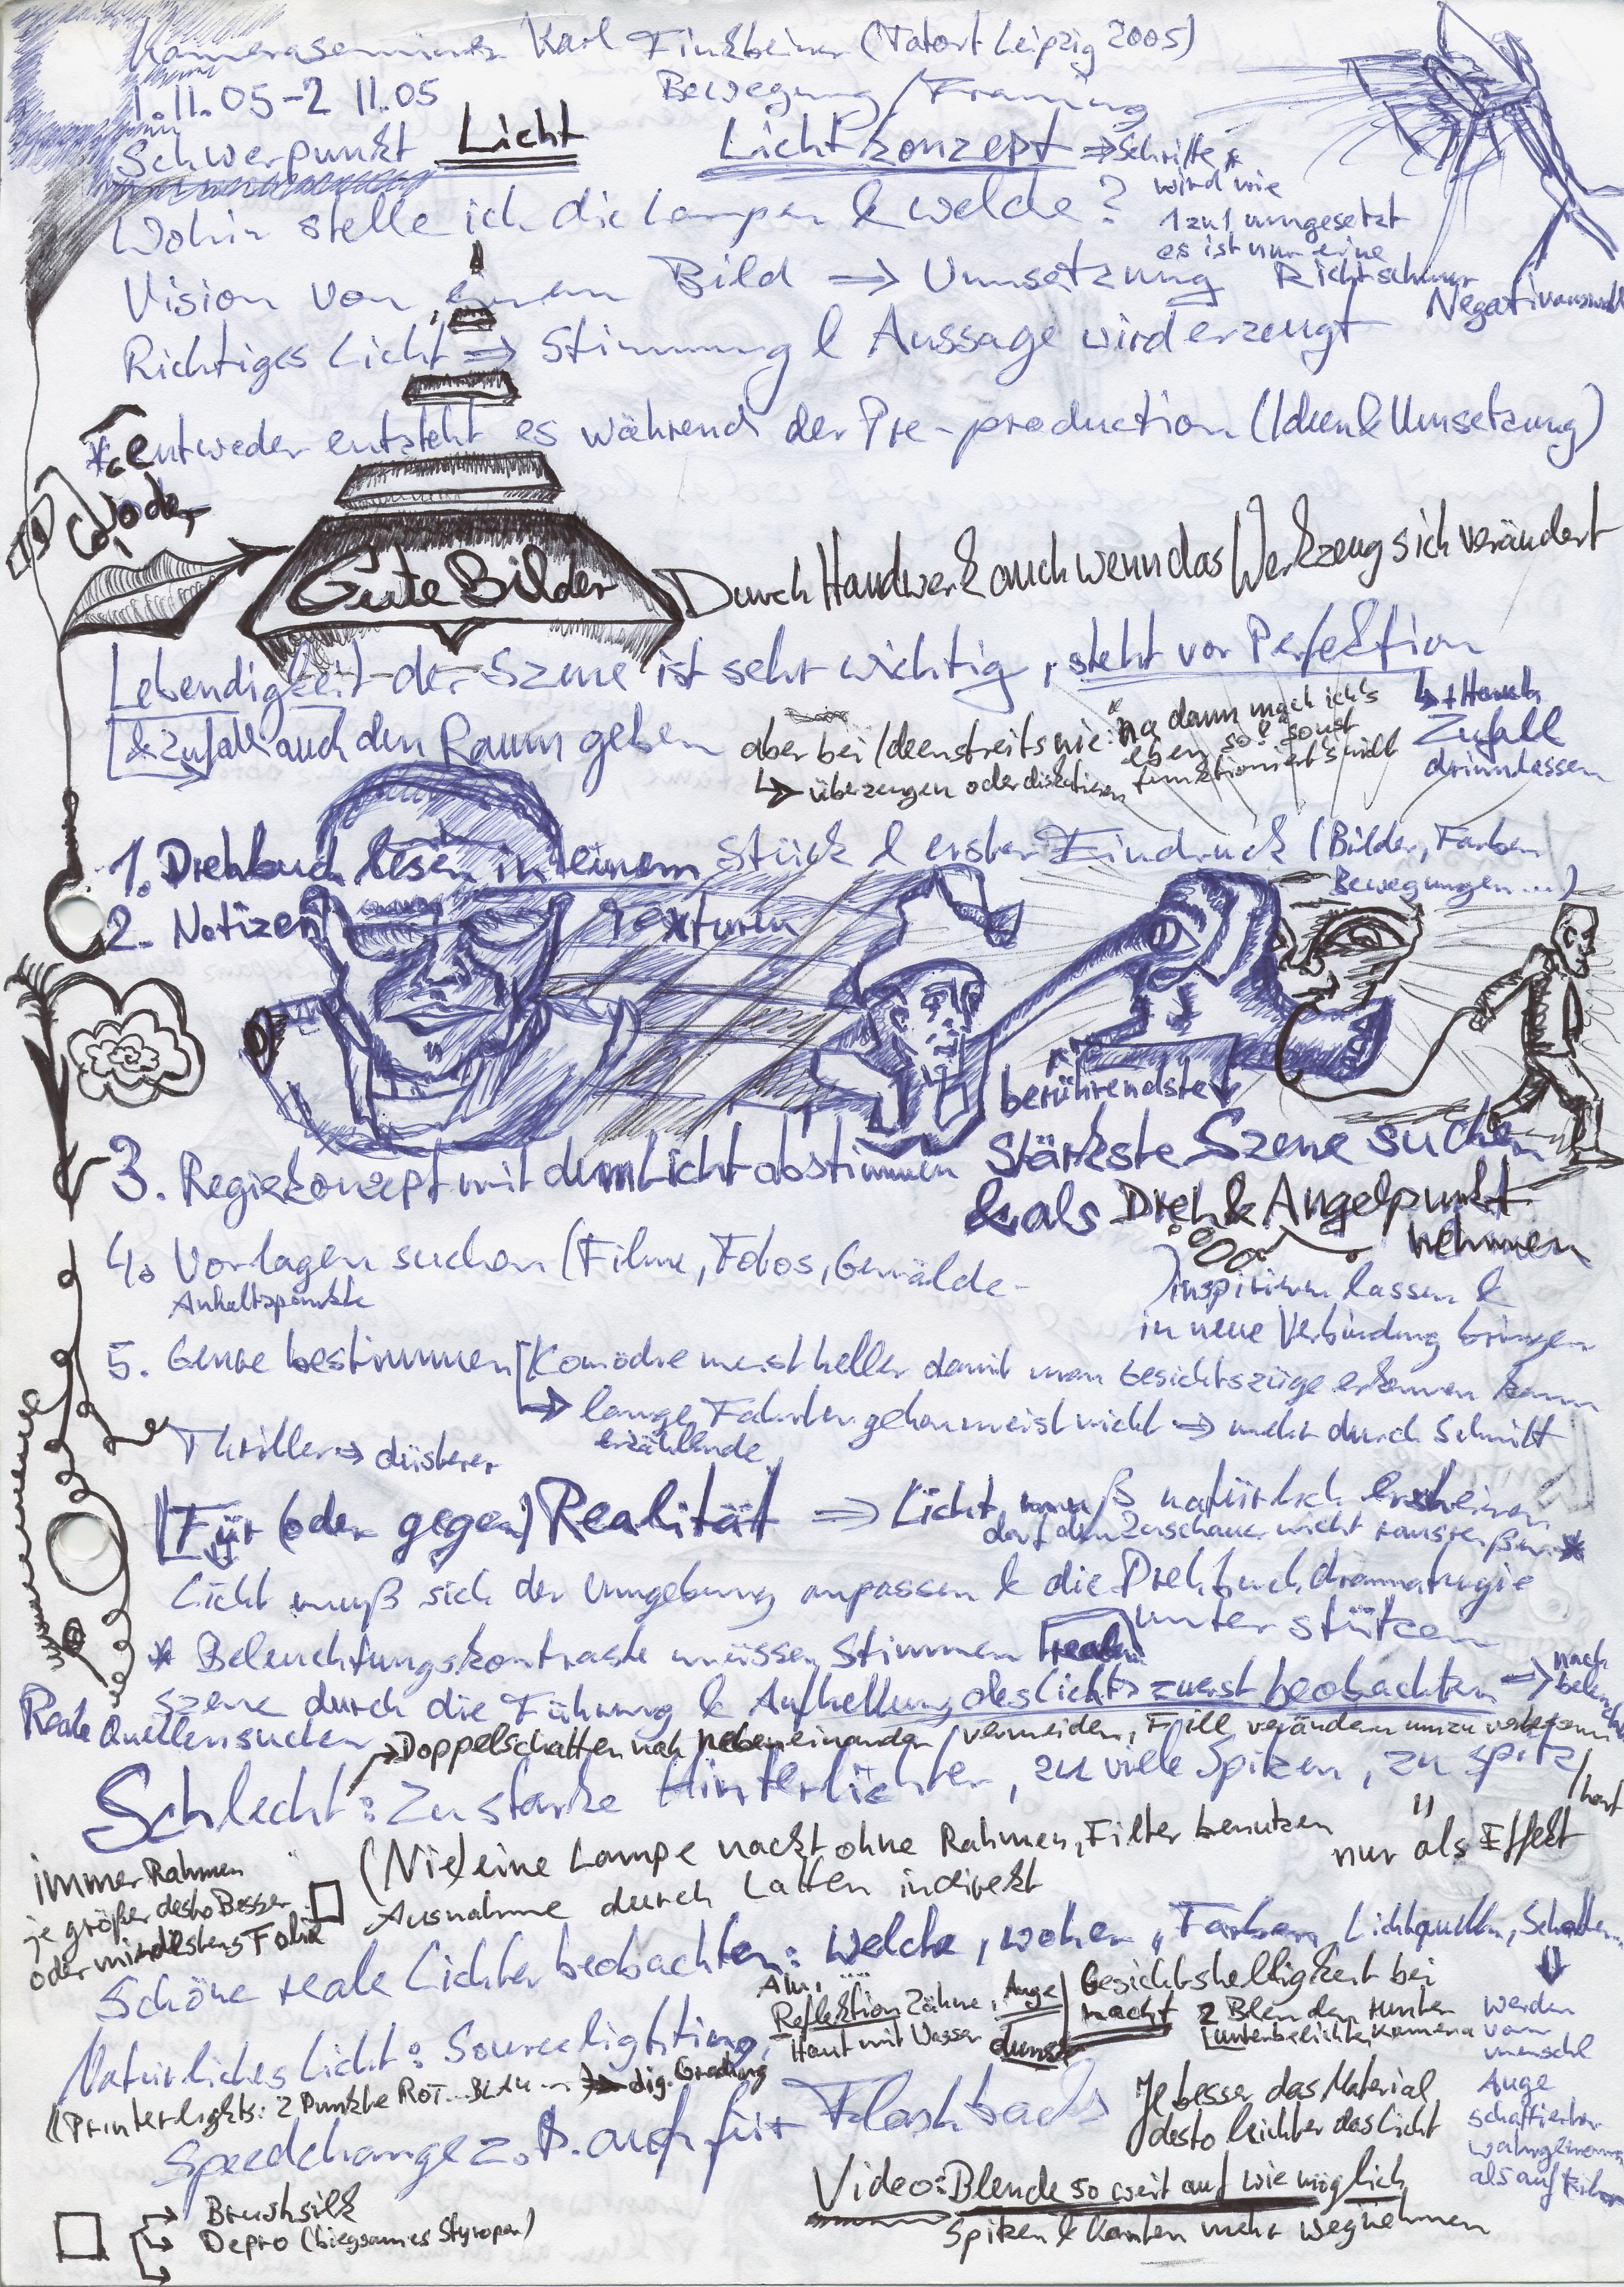 Kameraseminar Karl Finkbeiner (Tatort Leipzig 2005)
1.11.05-2 11.05
Bewegung / Framing
Schwerpunkt Licht
Lichtkonzept ⇒ Schritte *
wird wie
1 zu 1 umgesetzt
es ist nur eine
Richtschnur
Wohin stelle ich die Lampen & welche?
Vision von einem Bild ⇒ Umsetzung
Negativauswahl
Richtiges Licht ⇒ Stimmung & Aussage wird erzeugt
* entweder entsteht es während der Pre-production (Ideen & Umsetzung)
oder
Gute Bilder
Durch Handwerk auch wenn das Werkzeug sich verändert
Lebendigkeit der Szene ist sehr wichtig, steht vor Perfektion
& Zufall auch den Raum geben
aber bei Ideenstreits nie: "na dann mach ich's
eben so" sonst
funktioniert's nicht
↳ überzeugen oder diskutieren
Zufall
drinnlassen
1. Drehbuch lesen in einem Stück & erster Eindruck (Bilder, Farben
Bewegungen ...)
2. Notizen Texturen
berührendste
3. Regiekonzept mit dem Licht abstimmen
Stärkste Szene suchen
& als Dreh & Angelpunkt
nehmen
4. Vorlagen suchen (Filme, Fotos, Gemälde -
Anhaltspunkte
) inspirieren lassen &
in neue Verbindung bringen
5. Genre bestimmen [Komödie meist heller damit man Gesichtszüge erkennen kann
lange Fahrten gehen meist nicht ⇒ mehr durch Schnitt
erzählende
Thriller ⇒ düsterer
Für (oder gegen) Realität ⇒ Licht muß natürlich erscheinen
darf den Zuschauer nicht rausreißen *
Licht muß sich der Umgebung anpassen & die Drehbuchdramaturgie
unterstützen
* Beleuchtungskontraste müssen stimmen real
Szene durch die Führung & Aufhellung des Lichts zuerst beobachten ⇒ nach
Reale Quellen suchen
Doppelschatten nah nebeneinander vermeiden, Fill verändern um zu verbessern
Schlecht: Zu starke Hinterlichter, zu viele Spitzen, zu spitz
/hart
" nur als Effekt
(Nie) eine Lampe nackt ohne Rahmen, Filter benutzen
Ausnahme durch Latten indirekt
immer Rahmen
je größer desto Besser
oder mindestens Folie
Schöne reale Lichter beobachten: Welche, woher, Farben, Lichtquellen, Schatten
Alu,
Reflektion Zähne, Auge
Haut mit Wasser dunst
Gesichtshelligkeit bei
nacht 2 Blenden runter
unterbelichte Kamera
werden
vom
menschl
Auge
schattierter
wahrgenommen
als auf
Natürliches Licht: Sourcelighting,
(Printerlights: 2 Punkte ROT... BLAU ...) ⇒ dig. Grading
Speedchange z.B. auch für Flashbacks
Je besser das Material
desto leichter das Licht
Video: Blende so weit auf wie möglich
Spitzen & Kanten mehr wegnehmen
Brushsilk
Depro (biegsames Styropor)